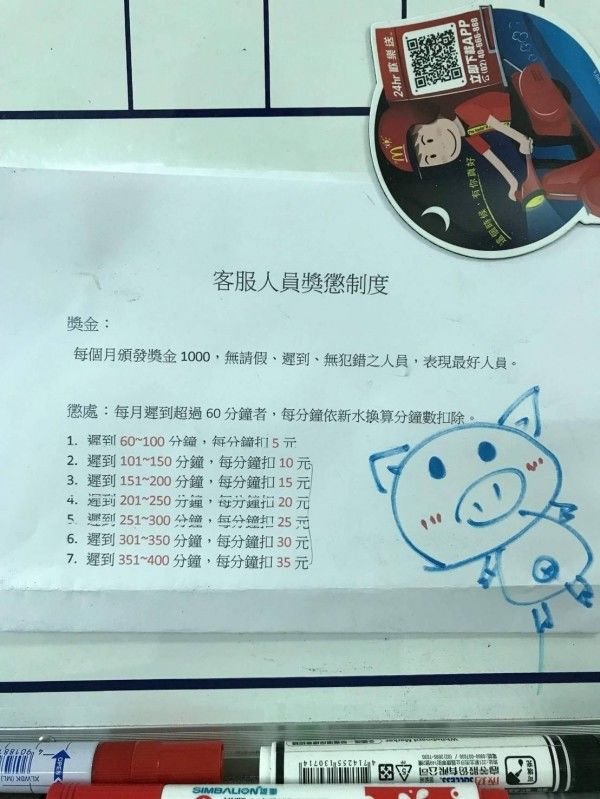 24hr 歡樂送
立即下載APP
這個時候，有你真好
客服人員獎懲制度
獎金：
每個月頒發獎金 1000，無請假、遲到、無犯錯之人員，表現最好人員。
懲處：每月遲到超過 60 分鐘者，每分鐘依新水換算分鐘數扣除。
1. 遲到 60~100 分鐘，每分鐘扣 5 元
2. 遲到 101~150 分鐘，每分鐘扣 10 元
3. 遲到 151~200 分鐘，每分鐘扣 15 元
4. 遲到 201~250 分鐘，每分鐘扣 20 元
5. 遲到 251~300 分鐘，每分鐘扣 25 元
6. 遲到 301~350 分鐘，每分鐘扣 30 元
7. 遲到 351~400 分鐘，每分鐘扣 35 元
Whiteboard Marker
SUCCESS